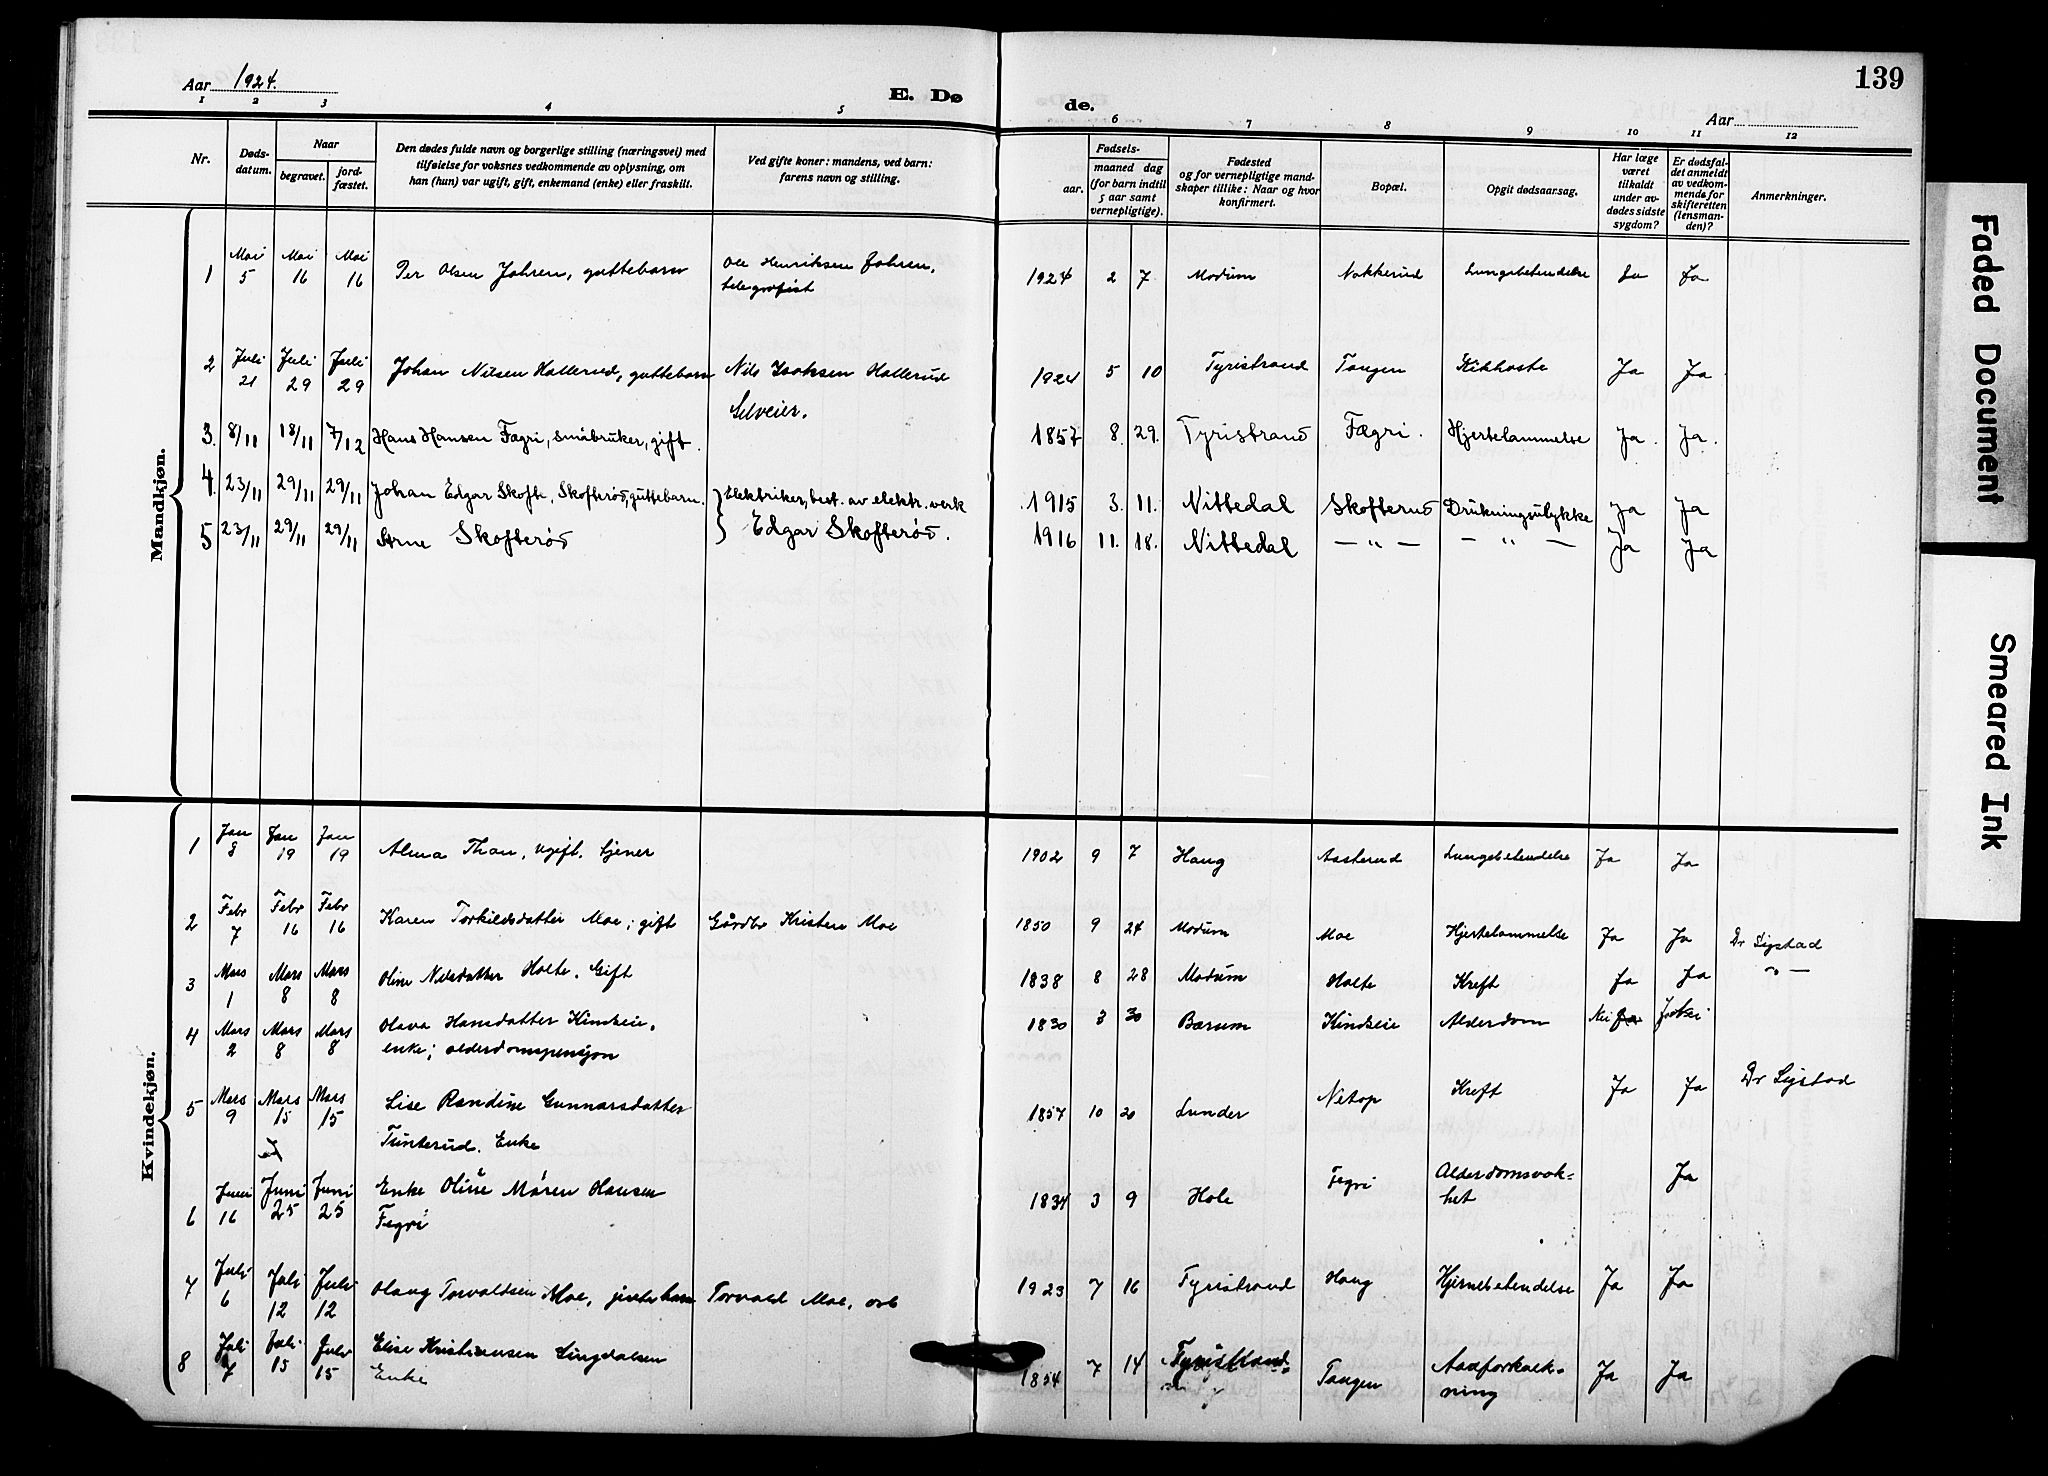 139
Aar 1924.
E. Døde.
Aar
1 2 3 4 5 6 7 8 9 10 11 12
Nr.
Døds-
datum.
Naar
begravet.
jord-
fæstet.
Den dødes fulde navn og borgerlige stilling (næringsvei) med
tilføielse for voksnes vedkommende av oplysning, om
han (hun) var ugift, gift, enkemand (enke) eller fraskilt.
Ved gifte koner: mandens, ved barn:
farens navn og stilling.
Fødsels-
aar.
maaned dag
(for barn indtil
5 aar samt
vernepligtige).
Fødested
og for vernepligtige mand-
skaper tillike: Naar og hvor
konfirmert.
Bopæl.
Opgit dødsaarsag.
Har læge
været
tilkaldt
under av-
dødes sidste
sygdom?
Er dødsfal-
det anmeldt
av vedkom-
mende for
skifteretten
(lensman-
den)?
Anmerkninger.
Mandkjøn.
1 Mai 5 Mai 16 Mai 16 Per Olsen Johren, guttebarn Ole Henriksen Johren, 1924 2 7 Modum Nakkerud Lungebetendelse Ja Ja
telegrafist
2 Juli 21 Juli 29 Juli 29 Johan Nilsen Hallerud, guttebarn Nils Isaksen Hallerud 1924 5 10 Tyristrand Tangen Kikhoste Ja Ja
Selveier.
3. 8/11 18/11 7/12 Hans Hansen Fægri, småbruker, gift. 1857 8. 29. Tyristrand Fægri. Hjertelammelse Ja. Ja.
4. 23/11 29/11 29/11 Johan Edgar Skofte, Skofterød, guttebarn. Elektriker, best. av elektr. verk 1915 3. 11. Nittedal Skofterud Drukningsulykke Ja Ja
5 23/11 29/11 29/11 Arne Skofterød Edgar Skofterød. 1916 11. 18. Nittedal — " — — " — Ja Ja
Kvindekjøn.
1 Jan 8 Jan 19 Jan 19 Alma Thon, ugift. tjener 1902 9 7 Haug Aasterud Lungebetendelse Ja Ja
2 Febr 7 Febr 16 Febr 16 Karen Torkildsdatter Moe; gift Gårdbr Kristen Moe 1850 9 24 Modum Moe Hjertelammelse Ja Ja Dr Systad
3 Mars 1 Mars 8 Mars 8 Oline Nilsdatter Holte. Gift 1838 8 28 Modum Holte Kreft Ja Ja " —
4 Mars 2 Mars 8 Mars 8 Olava Hansdatter Kindseie, 1830 3 30 Bærum Kindseie Alderdom Nei Ja Ja Nei
enke; alderdomspensjon
5 Mars 9 Mars 15 Mars 15 Lise Randine Gunnarsdatter 1857 10 20 Lunder Netop Kreft Ja Ja Dr Systad
Tunterud. Enke
6 Juni 16 Juni 25 Juni 25 Enke Oline Maren Hansen 1834 3 9 Hole Fegri Alderdomsvak- Ja
Fegri het
7 Juli 6 Juli 12 Juli 12 Olaug Torvaldsen Moe, pikebarn Torvald Moe, arb 1923 7 16 Tyristrand Haug Hjernebetendelse Ja Ja
8 Juli 7 Juli 15 Juli 15 Elise Kristiansen Lingdalsen 1854 7 14 Tyristrand Tangen Aareforkalk- Ja Ja
Enke ning
Faded Document
Smeared Ink